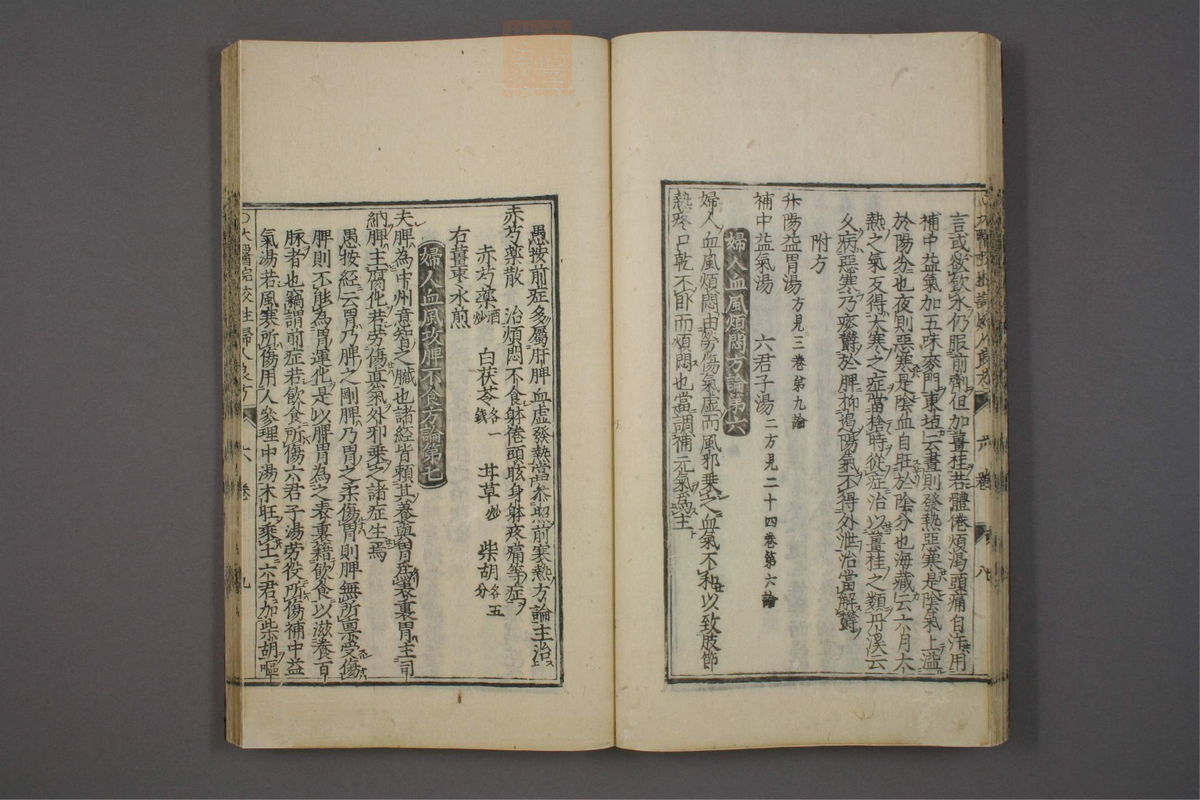 言或欲飲水仍服前劑但加薑桂若體倦煩渴頭痛自汗用
補中益氣加五味麥門東垣云晝則發熱惡寒是陰氣上溢
於陽分也夜則惡寒是陰血自旺於陰分也海藏云六月大
熱之氣反得大寒之症當捨時從症治以薑桂之類丹溪云
久病惡寒乃痰鬱於脾抑遏陽氣不得外泄治當解鬱
附方
升陽益胃湯方見三卷第九論
補中益氣湯 六君子湯二方見二十四卷第六論
婦人血風煩悶方論第六
婦人血風煩悶由勞傷氣虛而風邪乗之血氣不和以致肢節
熱疼口乾不臥而煩悶也當調補元氣爲主
愚按前症多屬肝脾血虛發熱當參照前寒熱方論主治
赤芍藥散 治煩悶不食躰倦頭眩身躰疼痛等症
赤芍藥酒炒 白茯苓各一錢 甘草炒 柴胡各五分
右薑棗水煎
婦人血風攻脾不食方論第七
夫脾為中州意智之臟也諸經皆賴其養與胃爲表裏胃主司
納脾主腐化若勞傷眞氣外邪乗之諸症生焉
愚按經云胃乃脾之剛脾乃胃之柔傷胃則脾無所禀受傷
脾則不能為胃運化是以脾胃為之表裏藉飲食以滋養百
脉者也竊謂前症若飲食所傷六君子湯勞役所傷補中益
氣湯若風寒所傷用人參理中湯木旺乗土六君加柴胡嘔
太醫院校註婦人良方
六卷
九
六卷
八